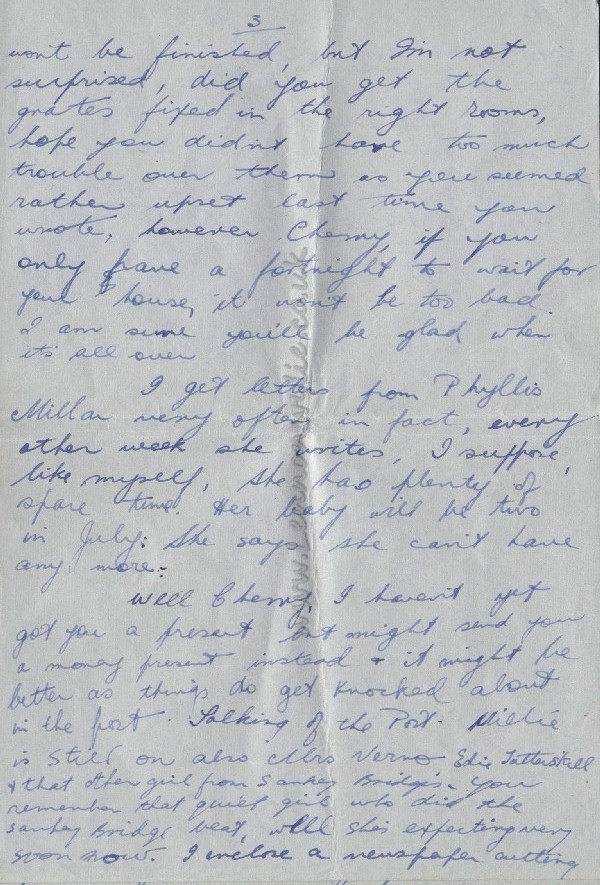 3
wont be finished, but I'm not
surprised, did you get the
grates fixed in the right rooms,
hope you didn't have too much
trouble over them as you seemed
rather upset last time you
wrote, however Cherry, if you
only have a fortnight to wait for
your house, it won't be too bad
I am sure you'll be glad when
it's all over
I get letters from Phyllis
Millar very often, in fact, every
other week she writes, I suppose,
like myself, she has plenty of
spare time. Her baby will be two
in July. She says she can't have
any more.
Well Cherry, I haven't yet
got you a present but might send you
a money present instead & it might be
better as things do get knocked about
in the post. Talking of the Post. Millie
is still on also Mrs Verno Edie Tatterskell
& that other girl from Sankey Bridges. You
remember that quiet girl who did the
Sankey Bridge beat, well she's expecting very
soon now. I inclose a newspaper cutting